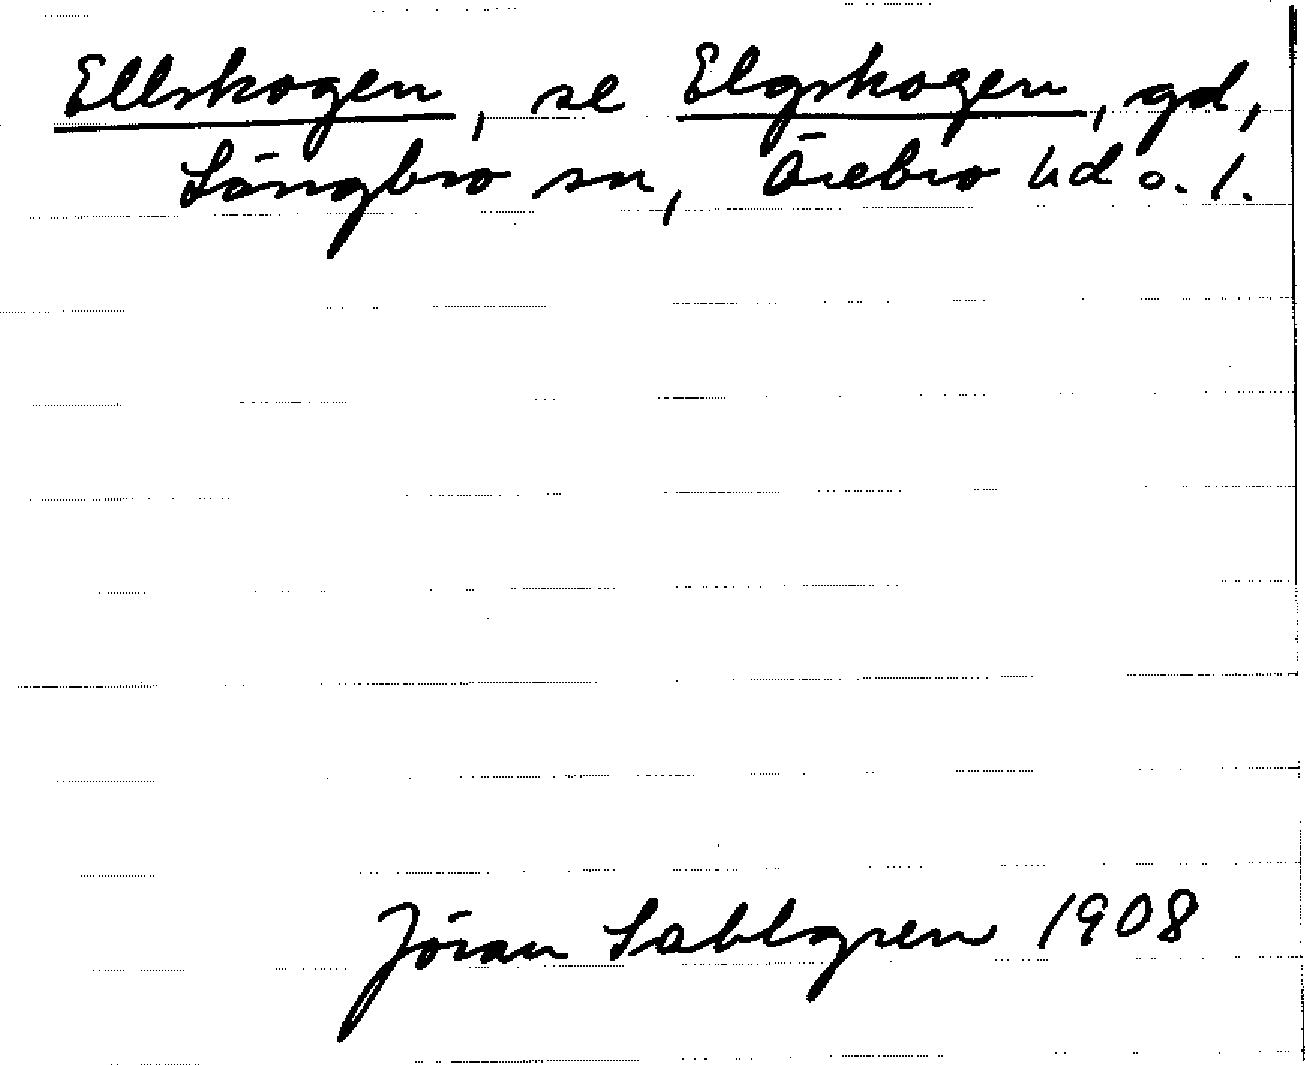 Ellskogen, se Elgskogen, gd,
Längbro sn, Örebro hd o. l.
Jöran Sahlgren 1908